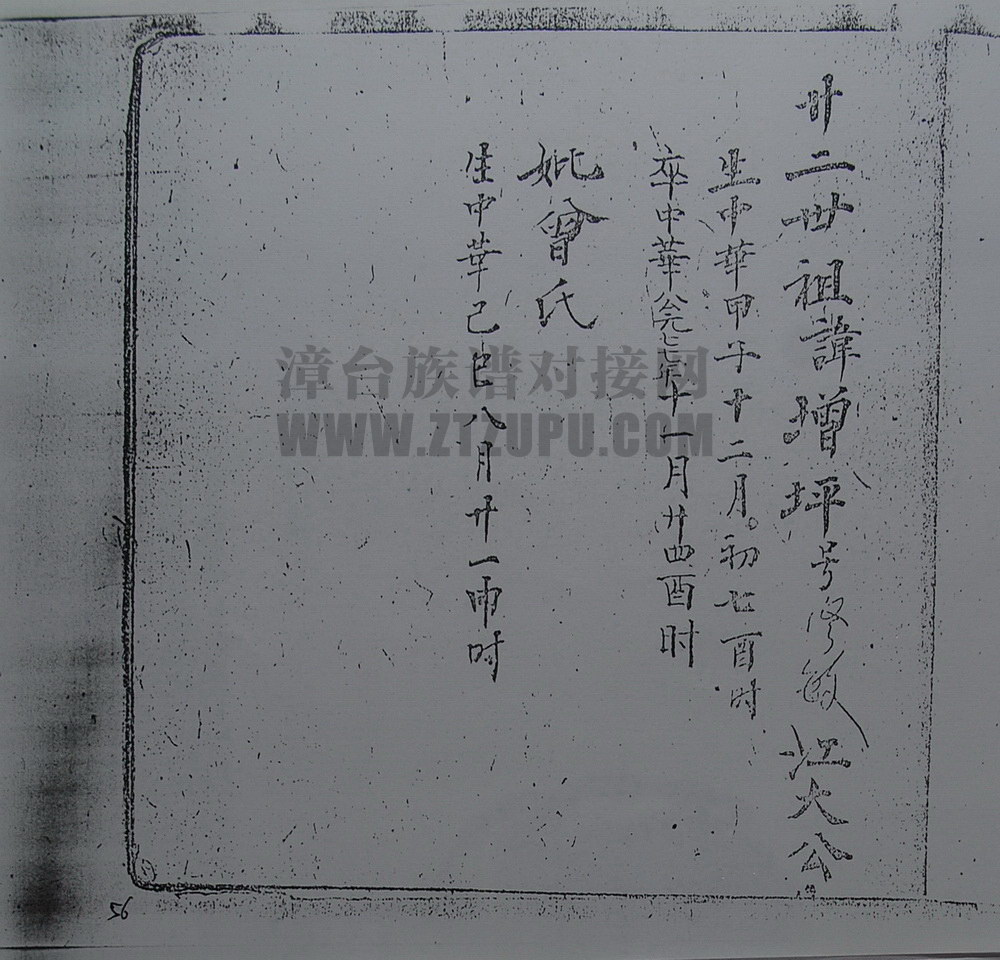 廿二世祖諱增坪号修敏江大公
生中華甲子十二月初七酉时
卒中華年十一月廿四酉时
妣曾氏
生中華己巳八月廿一时
漳台族谱对接网
WWW.ZTZUPU.COM
56